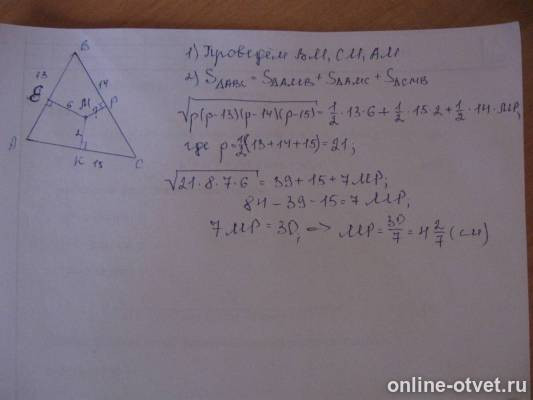 B
13
14
E
6
M
P
?
2
A
K
15
C
1) Проведём BM, CM, AM
2) S△ABC = S△AMB + S△AMC + S△CMB
√p(p-13)(p-14)(p-15) = 1/2 · 13 · 6 + 1/2 · 15 · 2 + 1/2 · 14 · MP,
где p = 1/2(13+14+15) = 21;
√21·8·7·6 = 39 + 15 + 7MP;
84 - 39 - 15 = 7 MP;
7MP = 30, => MP = 30/7 = 4 2/7 (см)
online-otvet.ru